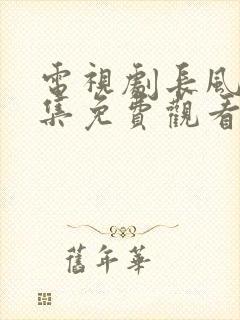 電視劇長風
集免費觀看
舊年華